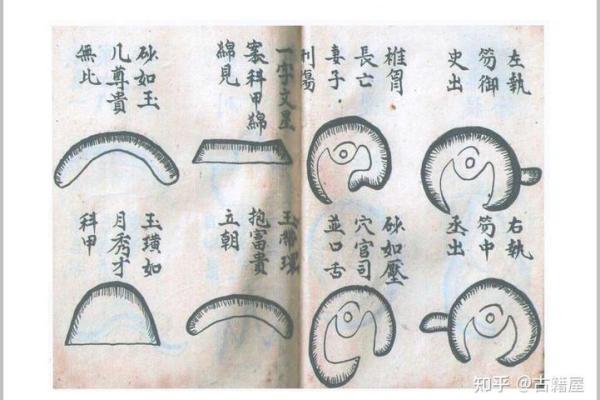 左執
笏御
史出
椎胷
長亡
妻子
刑傷
右執
笏中
丞出
砂如壓
穴官司
並口舌
一字文星
科甲綿
綿見
砂如玉
几尊貴
無比
玉帶環
抱富貴
立朝
玉璜如
月秀才
科甲
知乎 @古籍屋